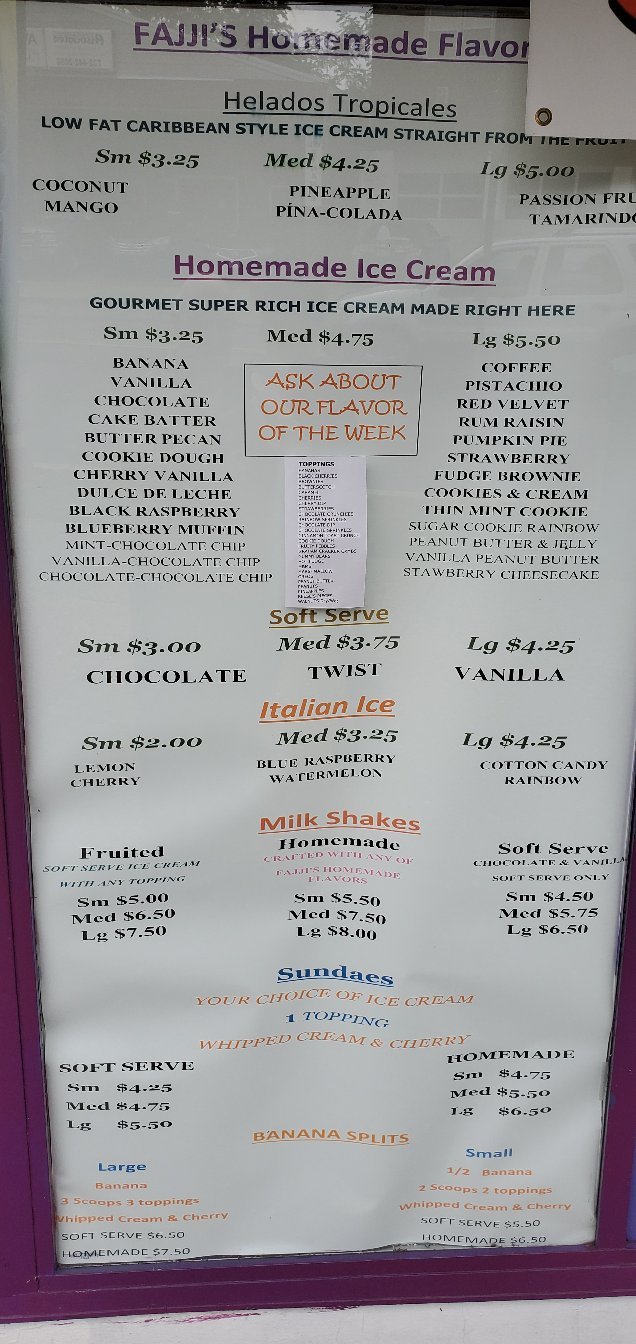 FAJJI'S Homemade Flavor
Helados Tropicales
LOW FAT CARIBBEAN STYLE ICE CREAM STRAIGHT FROM THE FRUIT
Sm $3.25 Med $4.25 Lg $5.00
COCONUT PINEAPPLE PASSION FRU
MANGO PÍNA-COLADA TAMARINDO
Homemade Ice Cream
GOURMET SUPER RICH ICE CREAM MADE RIGHT HERE
Sm $3.25 Med $4.75 Lg $5.50
BANANA
VANILLA
CHOCOLATE
CAKE BATTER
BUTTER PECAN
COOKIE DOUGH
CHERRY VANILLA
DULCE DE LECHE
BLACK RASPBERRY
BLUEBERRY MUFFIN
MINT-CHOCOLATE CHIP
VANILLA-CHOCOLATE CHIP
CHOCOLATE-CHOCOLATE CHIP
ASK ABOUT
OUR FLAVOR
OF THE WEEK
TOPPINGS
BANANAS
BLACK CHERRIES
BROWNIES
BUTTERSCOTCH
CARAMEL
CHERRIES
STRAWBERRIES
CHOCOLATE CRUNCHIES
RAINBOW SPRINKLES
CHOCOLATE SPRINKLES
COOKIE DOUGH
GRAHAM CRACKER CRMBS
GUMMY BEARS
HOT FUDGE
M&M'S
MARSHMALLOW
OREOS
PEANUTS
PINEAPPLES
COFFEE
PISTACHIO
RED VELVET
RUM RAISIN
PUMPKIN PIE
STRAWBERRY
FUDGE BROWNIE
COOKIES & CREAM
THIN MINT COOKIE
SUGAR COOKIE RAINBOW
PEANUT BUTTER & JELLY
VANILLA PEANUT BUTTER
STAWBERRY CHEESECAKE
Soft Serve
Sm $3.00 Med $3.75 Lg $4.25
CHOCOLATE TWIST VANILLA
Italian Ice
Sm $2.00 Med $3.25 Lg $4.25
LEMON BLUE RASPBERRY COTTON CANDY
CHERRY WATERMELON RAINBOW
Milk Shakes
Fruited
SOFT SERVE ICE CREAM
WITH ANY TOPPING
Sm $5.00
Med $6.50
Lg $7.50
Homemade
CRAFTED WITH ANY OF
FAJJI'S HOMEMADE
FLAVORS
Sm $5.50
Med $7.50
Lg $8.00
Soft Serve
CHOCOLATE & VANILLA
SOFT SERVE ONLY
Sm $4.50
Med $5.75
Lg $6.50
Sundaes
YOUR CHOICE OF ICE CREAM
1 TOPPING
WHIPPED CREAM & CHERRY
SOFT SERVE
Sm $4.25
Med $4.75
Lg $5.50
HOMEMADE
Sm $4.75
Med $5.50
Lg $6.50
BANANA SPLITS
Large
Banana
3 Scoops 3 toppings
Whipped Cream & Cherry
SOFT SERVE $6.50
HOMEMADE $7.50
Small
1/2 Banana
2 Scoops 2 toppings
Whipped Cream & Cherry
SOFT SERVE $5.50
HOMEMADE $6.50